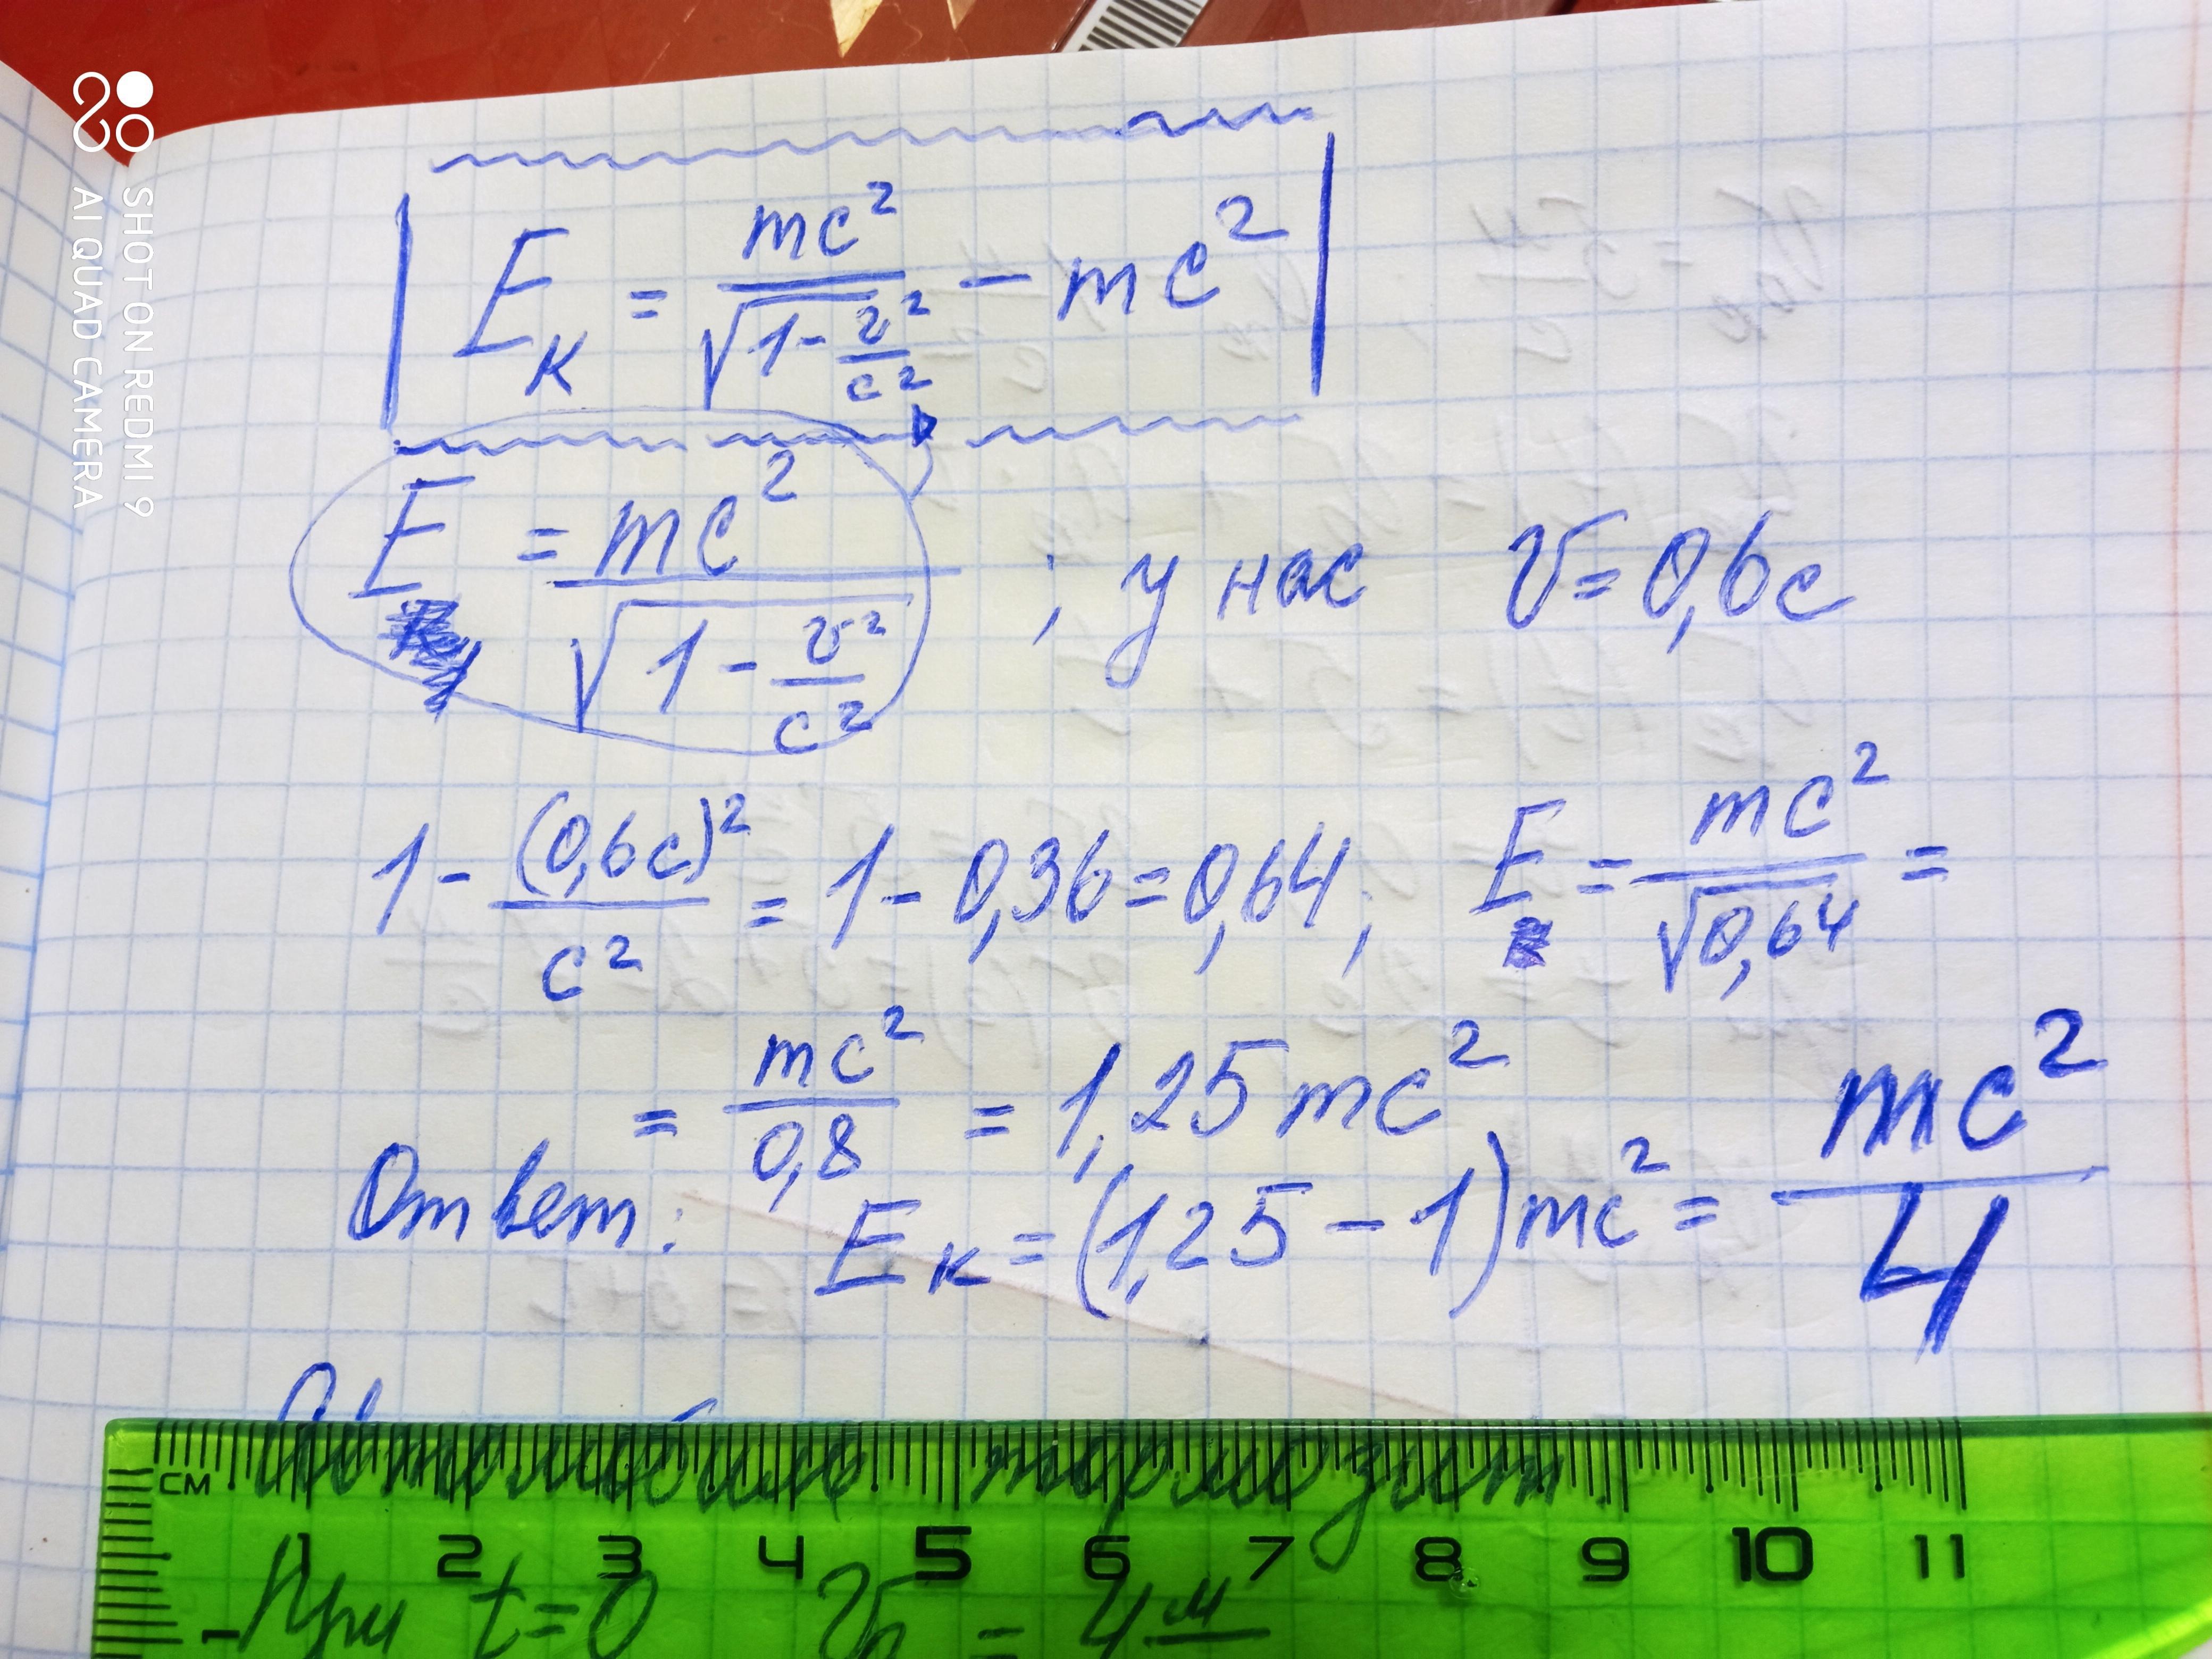 SHOT ON REDMI 9
AI QUAD CAMERA
E_к = mc² / √(1 - v²/c²) - mc²
E = mc² / √(1 - v²/c²) ; у нас v = 0,6c
1 - (0,6c)²/c² = 1 - 0,36 = 0,64; E = mc²/√0,64 =
= mc²/0,8 = 1,25 mc²
Ответ: E_к = (1,25 - 1) mc² = mc²/4
Автомобиль тормозит
см 1 2 3 4 5 6 7 8 9 10 11
При t=0 v₀ = 4 м